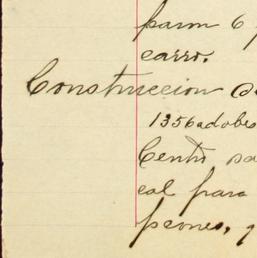 param 6
carro.
Construccion
1356 adobes
Centro
cal para
peones,